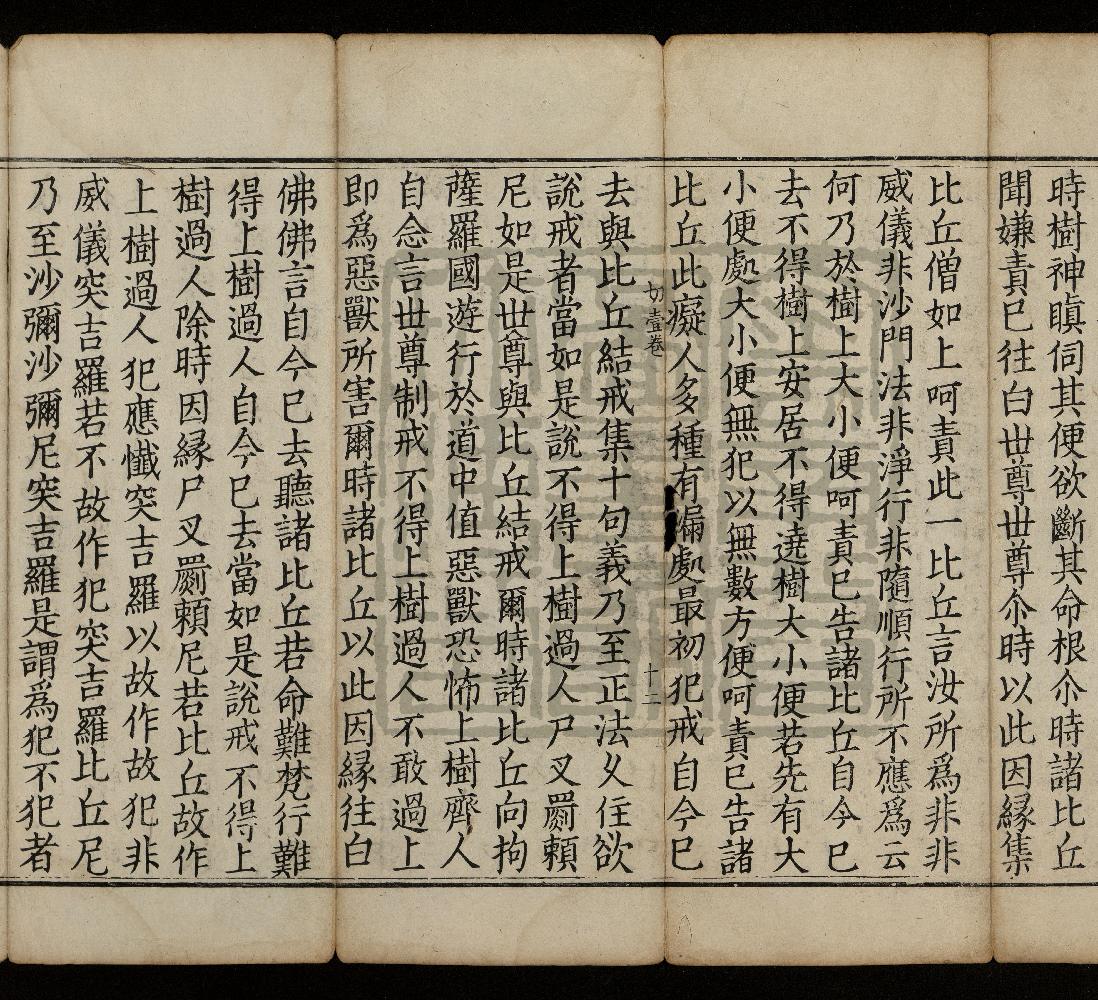 時樹神瞋伺其便欲斷其命根尒時諸比丘
聞嫌責已往白世尊世尊尒時以此因緣集
比丘僧如上呵責此一比丘言汝所爲非非
威儀非沙門法非淨行非隨順行所不應爲云
何乃於樹上大小便呵責已告諸比丘自今已
去不得樹上安居不得遶樹大小便若先有大
小便處大小便無犯以無數方便呵責已告諸
比丘此癡人多種有漏處最初犯戒自今已
切壹卷 十二
去與比丘結戒集十句義乃至正法久住欲
說戒者當如是說不得上樹過人尸叉罽頼
尼如是世尊與比丘結戒爾時諸比丘向拘
薩羅國遊行於道中值惡獸恐怖上樹齊人
自念言世尊制戒不得上樹過人不敢過上
即爲惡獸所害爾時諸比丘以此因緣往白
佛佛言自今已去聽諸比丘若命難梵行難
得上樹過人自今已去當如是說戒不得上
樹過人除時因緣尸叉罽頼尼若比丘故作
上樹過人犯應懺突吉羅以故作故犯非
威儀突吉羅若不故作犯突吉羅比丘尼
乃至沙彌沙彌尼突吉羅是謂爲犯不犯者